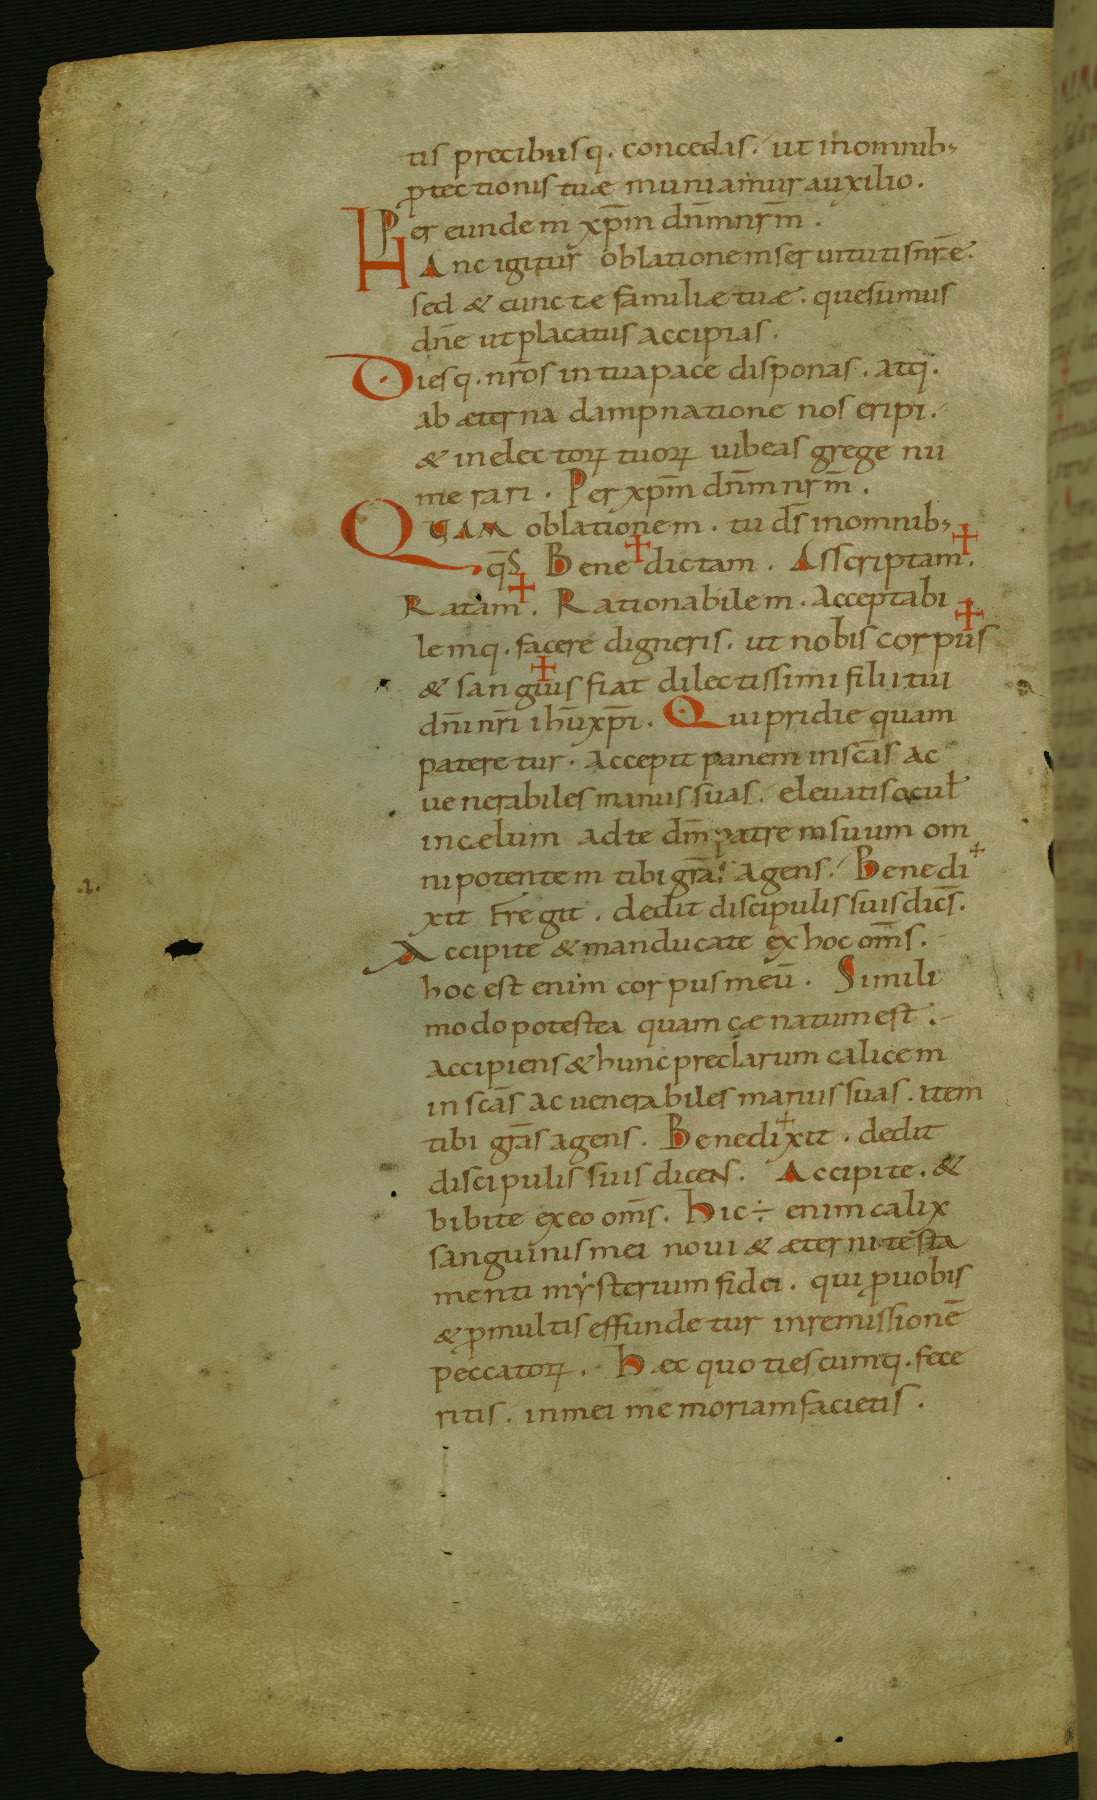 tis precibusq. concedas. ut inomnib;
ꝓtectionis tuæ muniamur auxilio.
Per eundem xp̄m dn̄mnr̄m.
HAnc igitur oblationem seruitutis nr̄e.
sed & cunctæ familiæ tuæ. quesumus
dn̄e ut placatus accipias.
Diesq. nr̄os in tua pace disponas. atq.
ab æterna dampnatione nos eripi.
& in electoꝝ tuoꝝ iubeas grege nu
merari. Per xp̄m dn̄m nr̄m.
QUAM oblationem. tu ds̄ inomnib;
.q̄s Bene✝dictam. Asscriptam✝.
Ratam✝. Rationabilem. Acceptabi
lemq. facere digneris. ut nobis corpus✝
& sanguis✝ fiat dilectissimi filii tui
dn̄i nr̄i ih̄u xp̄i. Qui pridie quam
pateretur. Accepit panem in sc̄as ac
uenerabiles manus suas. eleuatis ocul̄
in cælum ad te dm̄ patrem suum om
nipotentem tibi gr̄as agens. Benedi✝
xit Fregit. dedit discipulis suis dics̄.
Accipite & manducate ex hoc om̄s.
hoc est enim corpus meū. Simili
modo postea quam cænatum est.
accipiens & hunc preclarum calicem
in sc̄as ac uenerabiles manus suas. item
tibi gr̄as agens. Benedi✝xit. dedit
discipulis suis dicens. Accipite. &
bibite ex eo om̄s. Hic ÷ enim calix
sanguinis mei noui & æterni testa
menti mẏsterium fidei. qui ꝓ uobis
& ꝓ multis effundetur in remissionē
peccatoꝝ. Hæc quotiescumq. fece
ritis. in mei memoriam facietis.